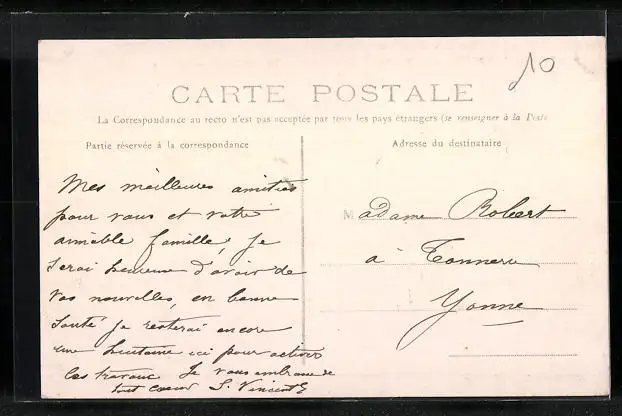 10
CARTE POSTALE
La Correspondance au recto n'est pas acceptée par tous les pays étrangers (se renseigner à la Poste
Partie réservée à la correspondance
Adresse du destinataire
Mes meilleures amitiés
pour vous et votre
aimable famille, je
serai heureuse d'avoir de
vos nouvelles, en bonne
santé je resterai encore
une huitaine ici pour activer
les travaux Je vous embrasse de
tout coeur S. Vincent
Madame Robert
à Tonnerre
Yonne